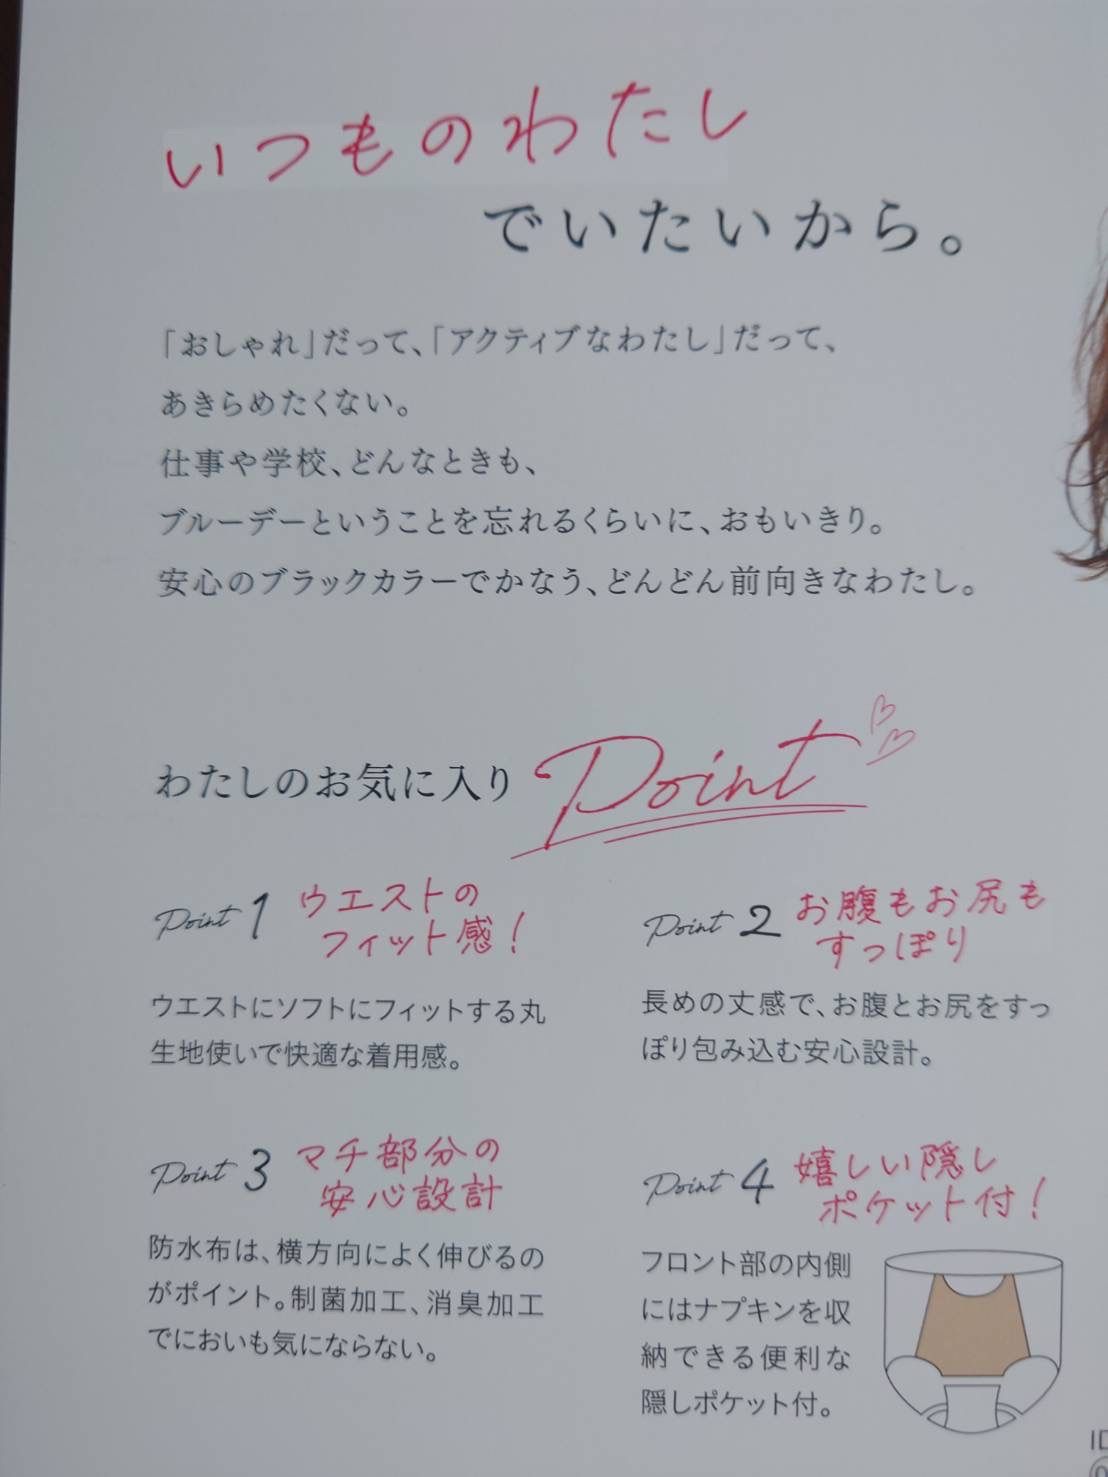 いつものわたし
でいたいから。
「おしゃれ」だって、「アクティブなわたし」だって、
あきらめたくない。
仕事や学校、どんなときも、
ブルーデーということを忘れるくらいに、おもいきり。
安心のブラックカラーでかなう、どんどん前向きなわたし。
わたしのお気に入り Point
Point 1 ウエストの
フィット感!
ウエストにソフトにフィットする丸
生地使いで快適な着用感。
Point 2 お腹もお尻も
すっぽり
長めの丈感で、お腹とお尻をすっ
ぽり包み込む安心設計。
Point 3 マチ部分の
安心設計
防水布は、横方向によく伸びるの
がポイント。制菌加工、消臭加工
でにおいも気にならない。
Point 4 嬉しい隠し
ポケット付!
フロント部の内側
にはナプキンを収
納できる便利な
隠しポケット付。